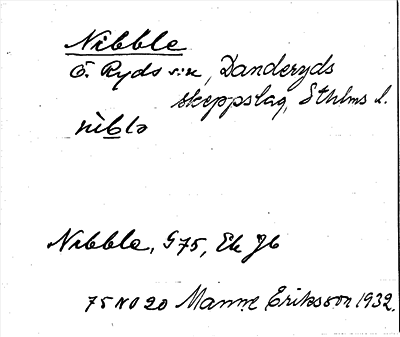 Nibble
Ö. Ryds sn, Danderyds
skeppslag, Sthlms l.
nibla
Nibble, G75, Ek Jb
75 NO 20 Manne Eriksson 1932.